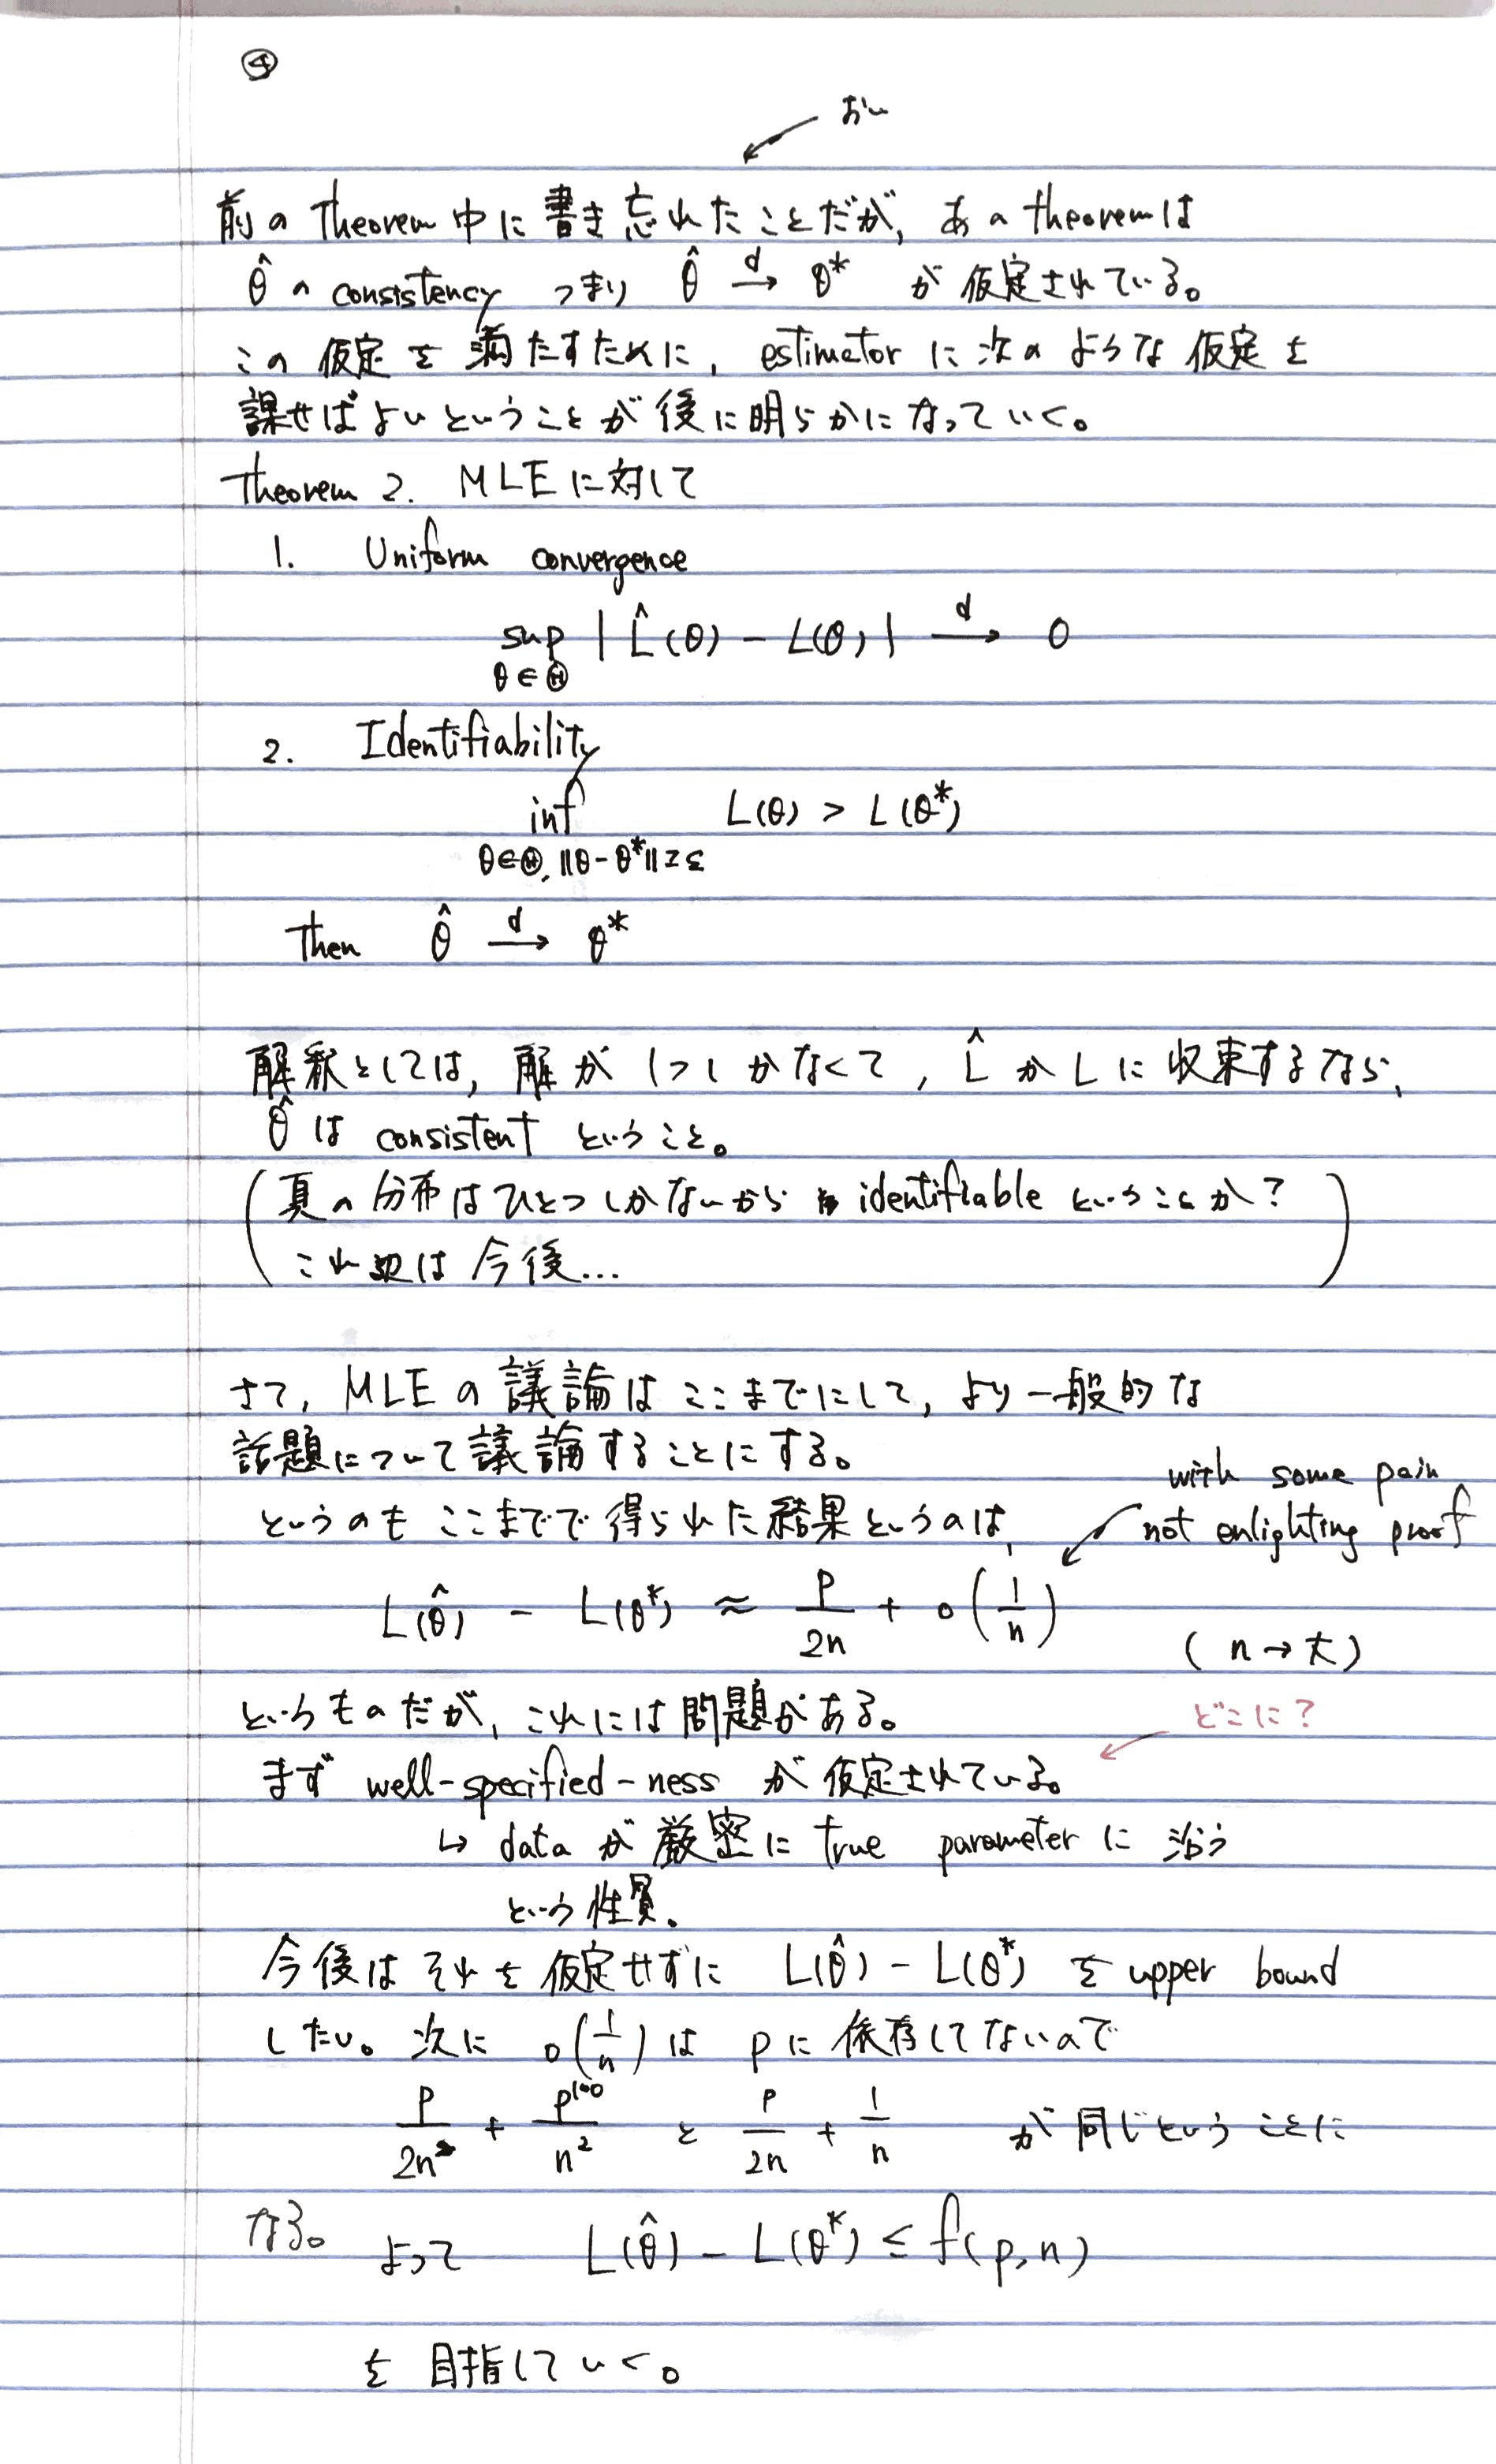 ④
おい
前の Theorem 中に書き忘れたことだが, あの theorem は
θ̂ の consistency つまり θ̂ →ᵈ θ* が仮定されている。
この仮定を満たすために, estimator に次のような仮定を
課せばよいということが後に明らかになっていく。
Theorem 2. MLE に対して
1. Uniform convergence
sup_{θ∈Θ} | L̂(θ) - L(θ) | →ᵈ 0
2. Identifiability
inf_{θ∈Θ, ||θ-θ*||≥ε} L(θ) > L(θ*)
Then θ̂ →ᵈ θ*
解釈としては, 解が1つしかなくて, L̂ が L に収束するなら,
θ̂ は consistent ということ。
(真の分布はひとつしかないから identifiable ということか?
これ辺は今後...)
さて, MLE の議論はここまでにして, より一般的な
話題について議論することにする。
with some pain
というのもここまでで得られた結果というのは,
not enlighting proof
L(θ̂) - L(θ*) ≈ p/2n + o(1/n)
(n→大)
というものだが, これには問題がある。
どこに?
まず well-specified-ness が仮定されている。
↳ data が厳密に true parameter に沿う
という性質。
今後はそれを仮定せずに L(θ̂) - L(θ*) を upper bound
したい。次に o(1/n) は p に依存してないので
p/2n + p¹⁰⁰/n² と p/2n + 1/n が同じということに
なる。 よって L(θ̂) - L(θ*) ≤ f(p, n)
を目指していく。